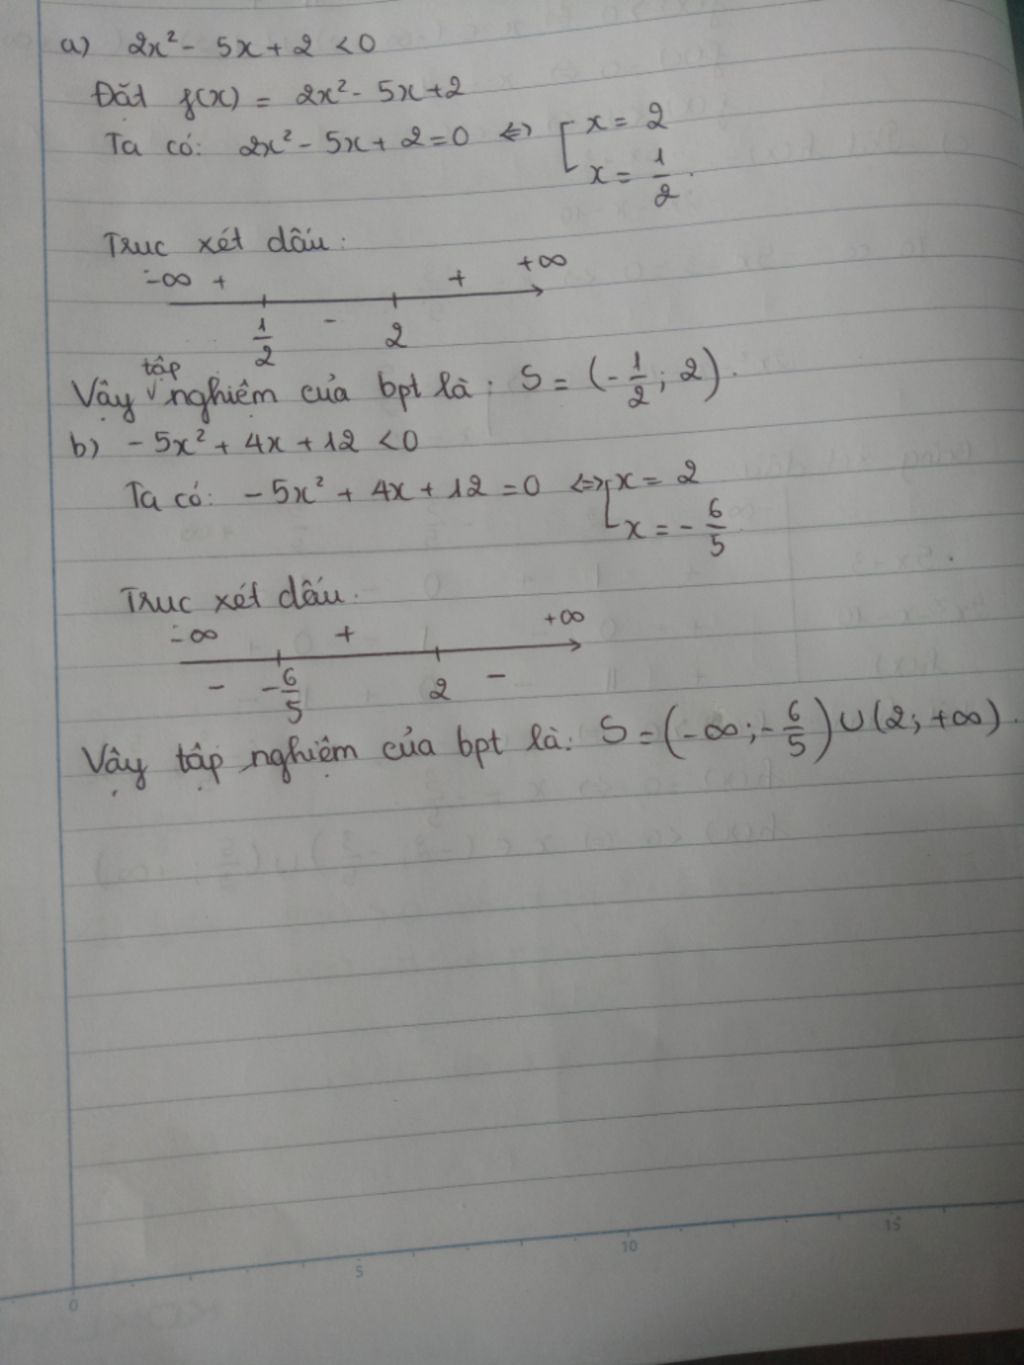 a) 2x² - 5x + 2 < 0
Đặt f(x) = 2x² - 5x + 2
Ta có: 2x² - 5x + 2 = 0 ⇔ [ x = 2
x = 1/2.
Trục xét dấu:
-∞ + + +∞
1/2 - 2
tập
Vậy √ nghiệm của bpt là: S = (-1/2; 2).
b) - 5x² + 4x + 12 < 0
Ta có: - 5x² + 4x + 12 = 0 ⇔ [ x = 2
x = - 6/5
Trục xét dấu.
-∞ + +∞
- -6/5 2 -
Vậy tập nghiệm của bpt là: S = (-∞; -6/5) ∪ (2; +∞).
0 5 10 15